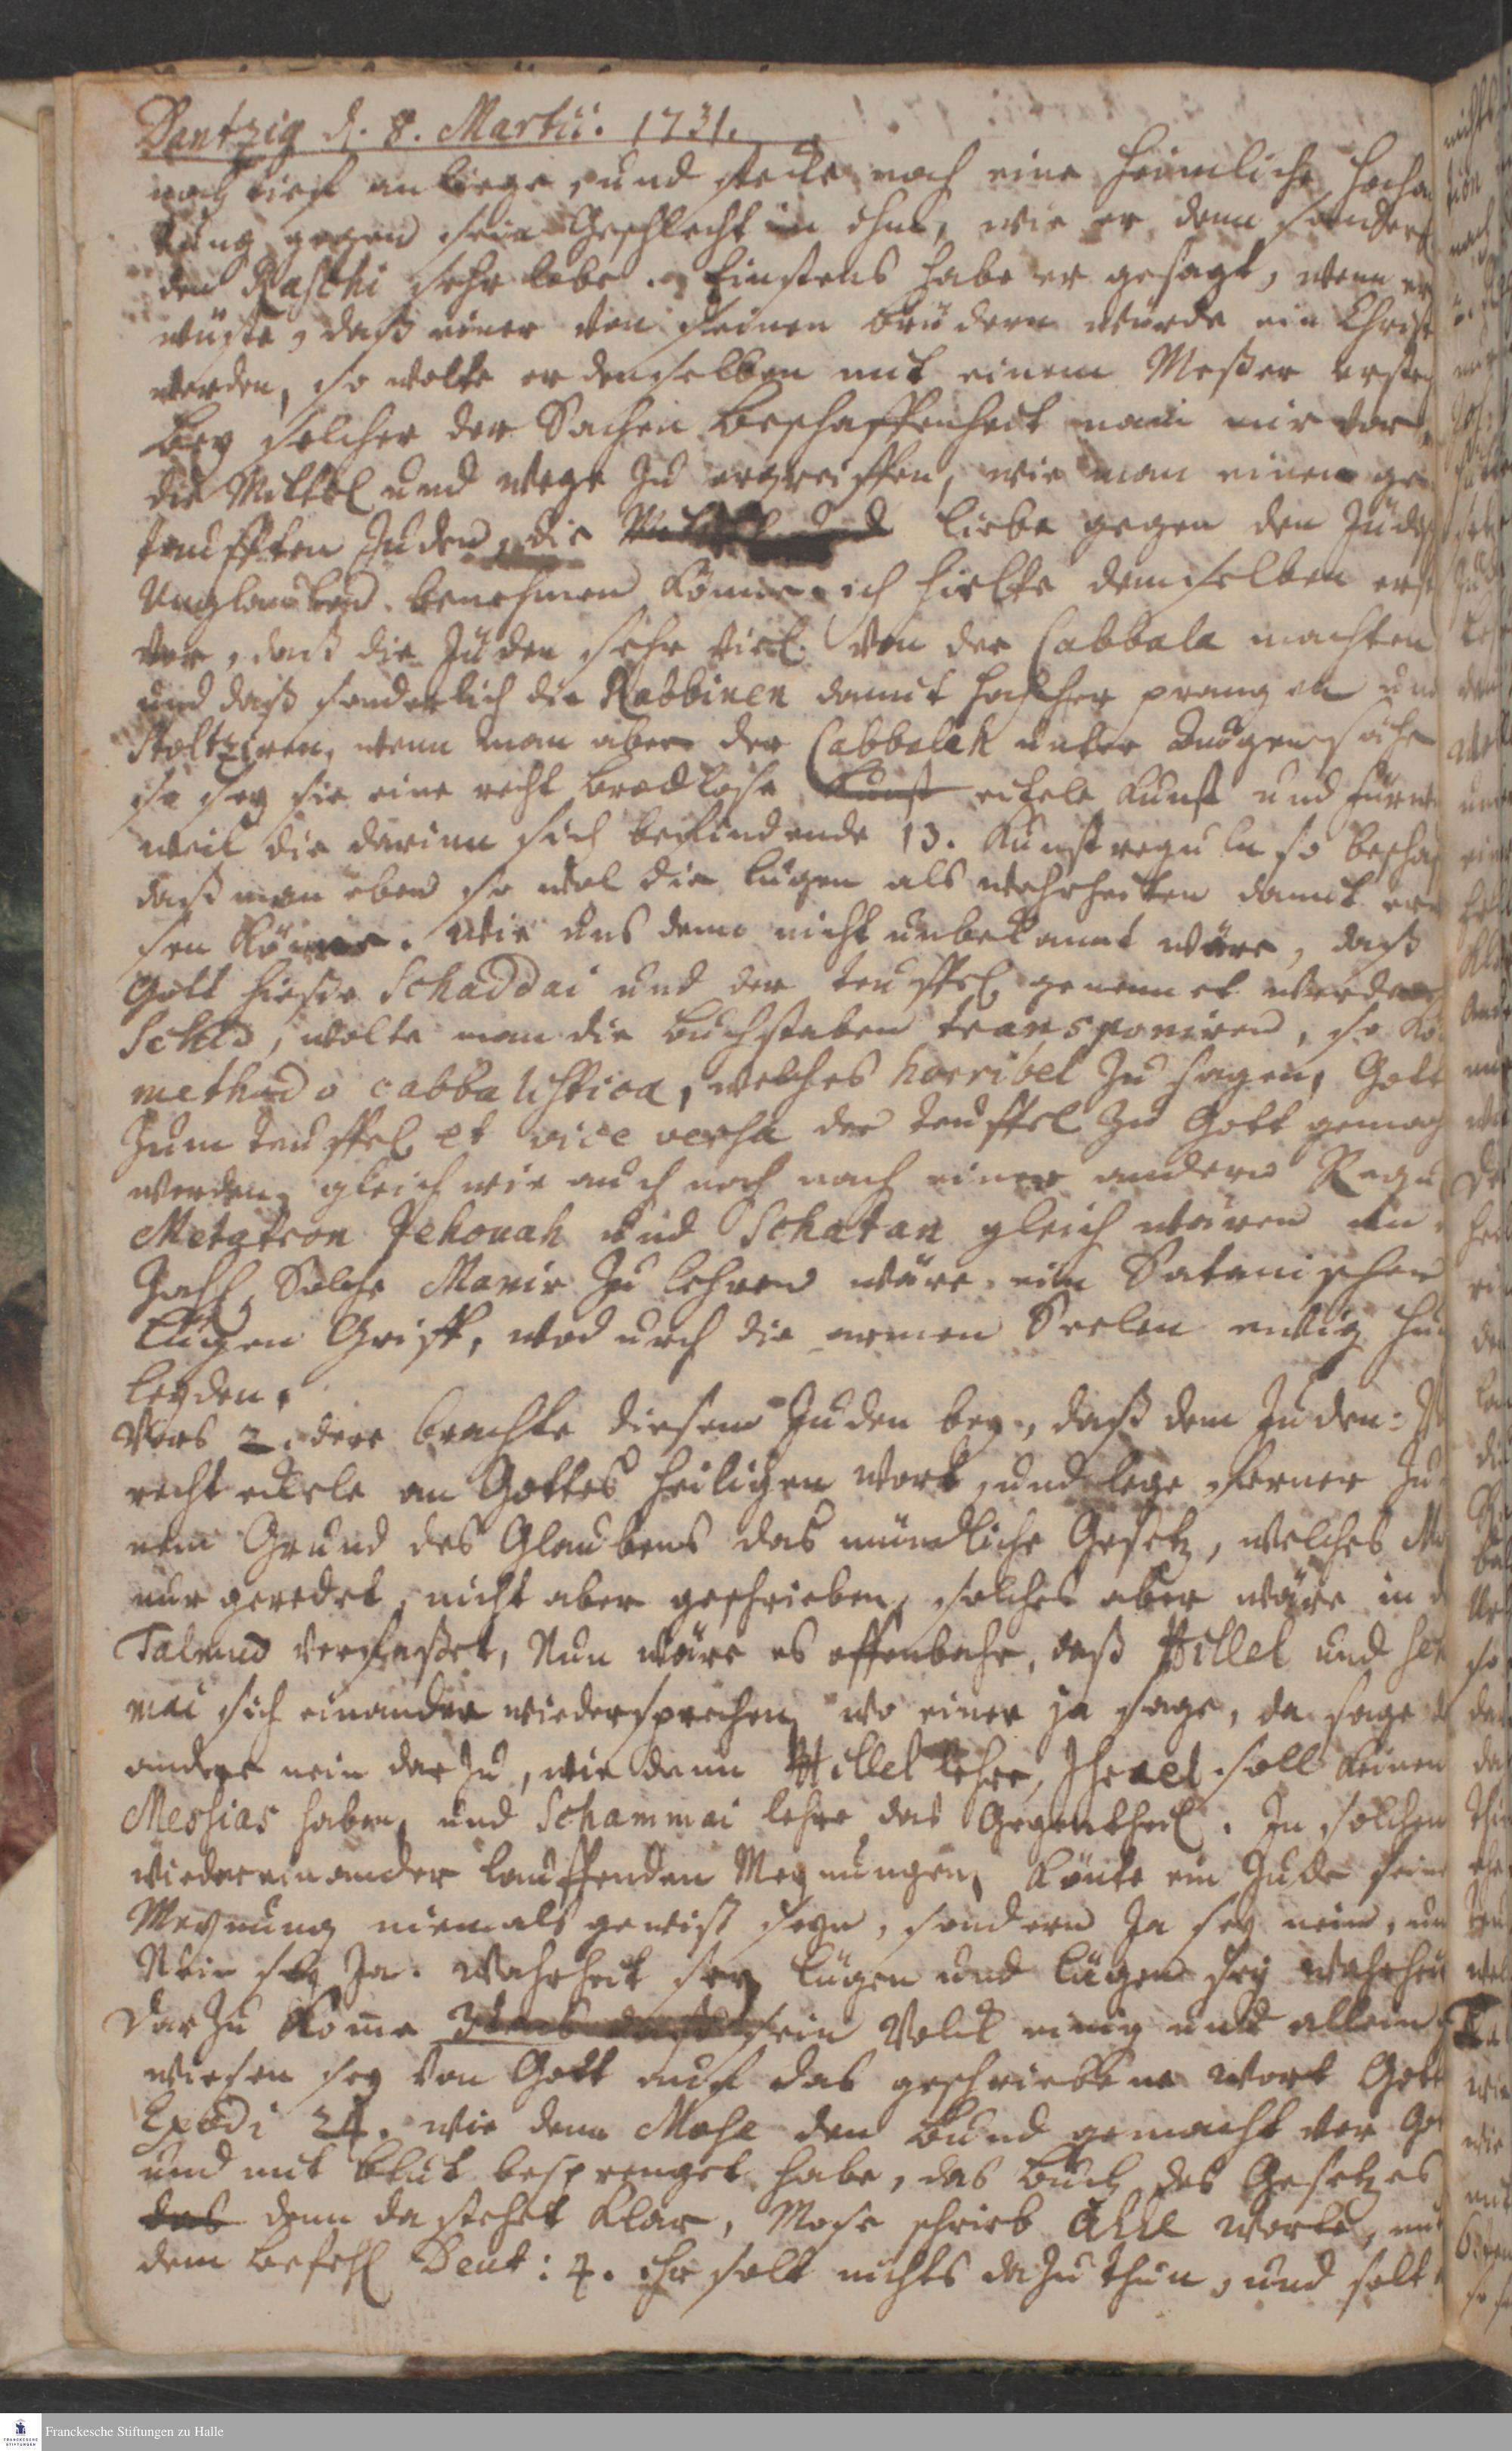 Dantzig d. 8. Martii. 1731.
noch tief anliege, und stecke noch eine heimliche Hocha
tung gegen sein Geschlecht in ihm, wie er denn sonderl
den Raschi sehr lobe. Einstens habe er gesagt, wenn er
wüste, daß einer von seinen brüdern würde ein Christ
werden, so wolte er denselben mit einem Meßer erste
Bey solcher der Sachen Beschaffenheit nam mir vor,
die Mittel und wege zu ergreiffen, wie man einem ge
taufften Juden, die Liebe gegen den Jüdisch
Unglauben benehmen könne. ich hielte demselben erst
vor, daß die Juden sehr viel von der Cabbala machten
und daß sonderlich die Rabbinen damit hoch her prangen und
stoltziren, wenn man aber der Cabbalah unter Augen sähe
so sey sie eine recht brodlose Kunst eitele Kunst und fürwi
weil die darinn sich befindende 13. Kunstreguln so beschaf
daß man eben so wol die Lügen als wahrheiten damit erw
sen könne. Wie uns denn nicht unbekannt wäre, daß
Gott hieße Schaddai und der teuffel genennet werde
Sched, wolte man die buchstaben transponiren, so kö
methodo cabbalistica, welches horribel zu sagen, Gott
zum teuffel et vice versa der teuffel zu Gott gemach
werden, gleich wie auch noch nach einer andern Regul
Metatron Jehovah und Schatan gleich wären an
Zahl, Solche Manir zu lehren wäre ein Satanischer
Lügen Griff, wodurch die armen Seelen ewig
leyden.
Vors 2. dere brachte diesem Juden bey, daß dem Juden:
recht eckele an Gottes heiligen Wort, und lege ferner zu
nem Grund des Glaubens das mündliche Gesetz, welches Mo
nur geredet, nicht aber geschrieben, solches aber wäre in d
Talmud verfaßet, Nun wäre es offenbahr, daß Hillel und Scha
mai sich einander wiedersprechen, wo einer ja sage, da sage d
andere nein darzu, wie dann Hillel lehre, Israel soll keinen
Messias haben, und Schammai lehre das Gegentheil. In solchen
wiedereinander lauffenden Meynungen, könte ein Jude seine
Meynung niemals gewiß seyn, sondern Ja sey nein, un
Nein sey Ja. Wahrheit sey Lügen und Lügen sey Wahrheit
Darzu kome 3tens sein Volck einig und allein
wiesen sey von Gott auf das geschriebene Wort Gott
Exodi 24. wie denn Mose den Bund gemacht vor Go
und mit Blut besprenget habe, das Buch des Gesetzes
das denn da stehet klar, Mose schrieb Alle Worte, mit
dem Befehl Deut: 4. ihr solt nichts dazu thun, und solt
Franckesche Stiftungen zu Halle